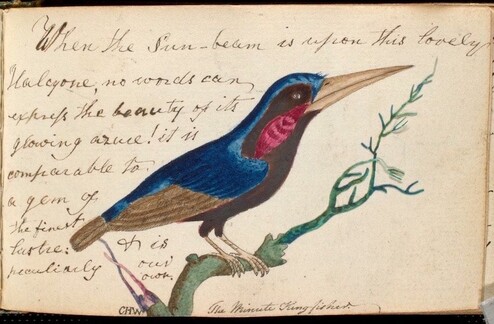 When the Sun-beam is upon this lovely
Halcyone, no words can
express the beauty of its
glowing azure! it is
comparable to
a gem of
the finest
lustre:
peculiarly
& is
our
own.
CHW
The Minute Kingfisher.